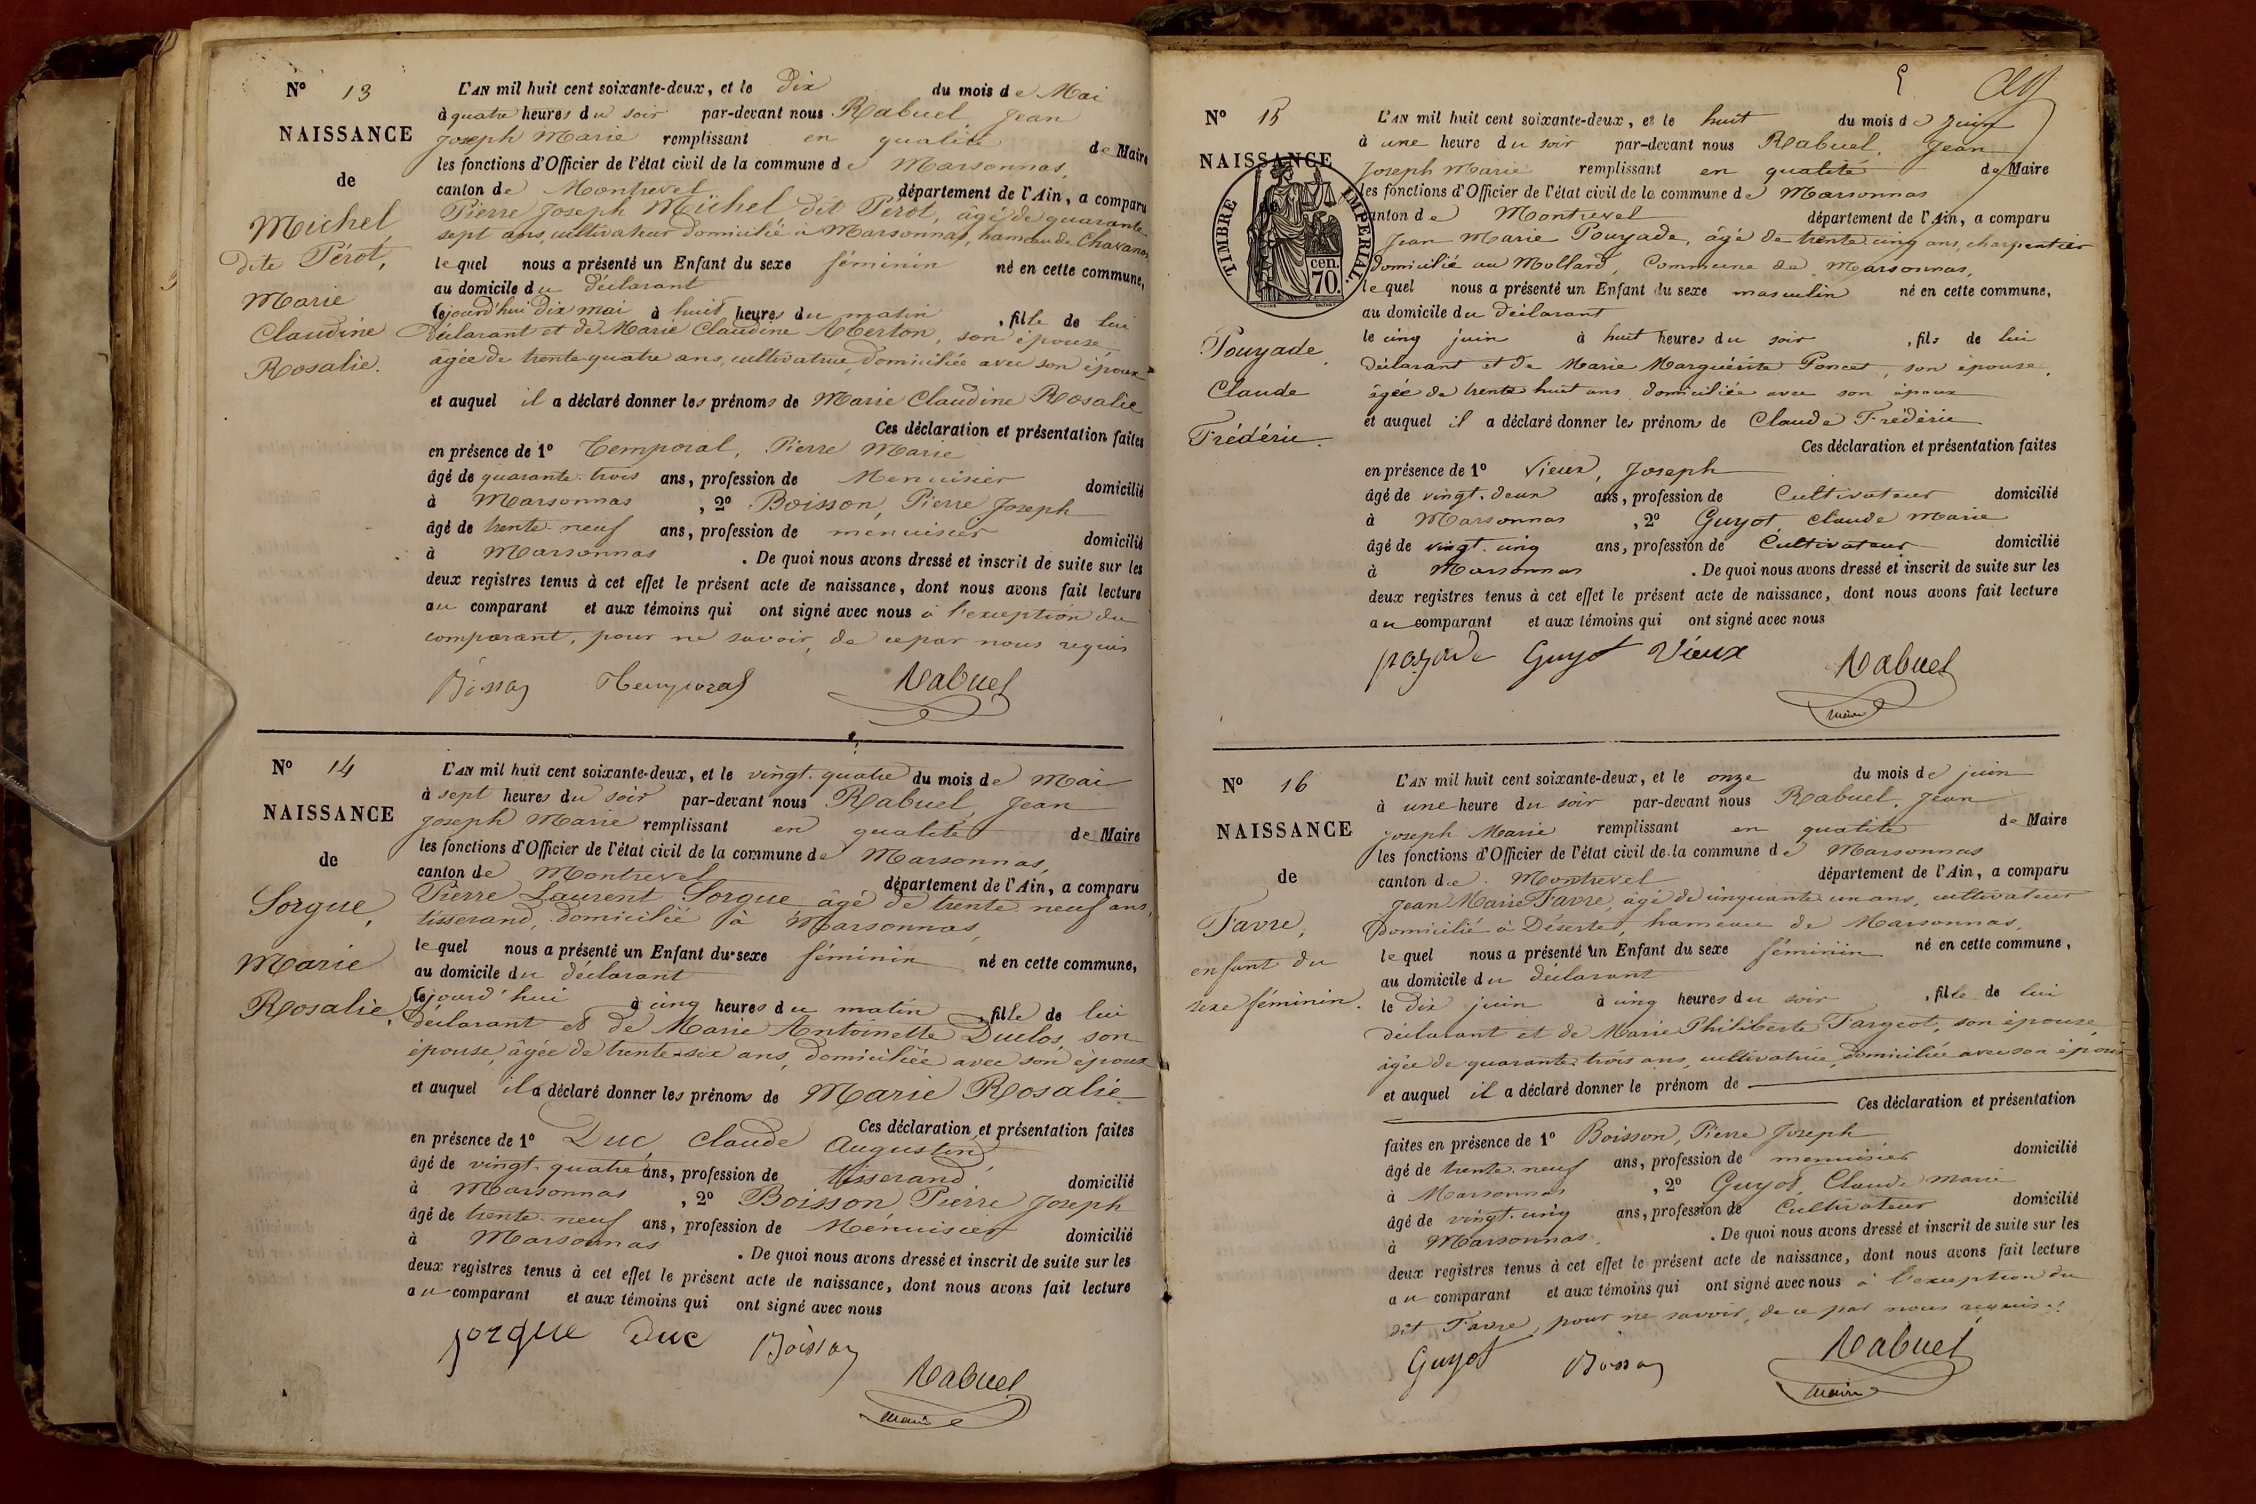 N° 13
NAISSANCE
de
Michel
dite Pérot,
Marie
Claudine
Rosalie.
L'AN mil huit cent soixante-deux, et le dix du mois de Mai
à quatre heures du soir par-devant nous Rabuel, Jean
Joseph Marie remplissant en qualité de Maire
les fonctions d'Officier de l'état civil de la commune de Marsonnas,
canton de Montrevel département de l'Ain, a comparu
Pierre Joseph Michel dit Pérot, âgé de quarante
sept ans, cultivateur domicilié à Marsonnas, hameau de Chavanes,
lequel nous a présenté un Enfant du sexe féminin né en cette commune,
au domicile du déclarant
cejourd'hui dix mai à huit heures du matin, fille de lui
Déclarant et de Marie Claudine son épouse,
âgée de trente quatre ans, cultivatrice, domiciliée avec son époux
et auquel il a déclaré donner les prénoms de Marie Claudine Rosalie
Ces déclaration et présentation faites
en présence de 1° Temporal, Pierre Marie
âgé de quarante-trois ans, profession de Menuisier domicilié
à Marsonnas, 2° Boisson, Pierre Joseph
âgé de trente-neuf ans, profession de menuisier domicilié
à Marsonnas. De quoi nous avons dressé et inscrit de suite sur les
deux registres tenus à cet effet le présent acte de naissance, dont nous avons fait lecture
au comparant et aux témoins qui ont signé avec nous à l'exception du
comparant, pour ne savoir, de ce par nous requis
Boisson Temporal Rabuel
N° 14
NAISSANCE
de
Sorgue,
Marie
Rosalie.
L'AN mil huit cent soixante-deux, et le vingt-quatre du mois de Mai
à sept heures du soir par-devant nous Rabuel, Jean
Joseph Marie remplissant en qualité de Maire
les fonctions d'Officier de l'état civil de la commune de Marsonnas,
canton de Montrevel département de l'Ain, a comparu
Pierre Laurent Sorgue âgé de trente-neuf ans,
tisserand, domicilié à Marsonnas,
lequel nous a présenté un Enfant du sexe féminin né en cette commune,
au domicile du déclarant
cejourd'hui à cinq heures du matin, fille de lui
déclarant et de Marie Antoinette Duclos, son
épouse, âgée de trente-six ans, domiciliée avec son époux
et auquel il a déclaré donner les prénoms de Marie Rosalie
Ces déclaration et présentation faites
en présence de 1° Duc, Claude Augustin,
âgé de vingt-quatre ans, profession de tisserand, domicilié
à Marsonnas, 2° Boisson Pierre Joseph
âgé de trente-neuf ans, profession de Menuisier domicilié
à Marsonnas. De quoi nous avons dressé et inscrit de suite sur les
deux registres tenus à cet effet le présent acte de naissance, dont nous avons fait lecture
au comparant et aux témoins qui ont signé avec nous
Sorgue Duc Boisson
Rabuel
maire
N° 15
NAISSANCE
de
TIMBRE IMPERIAL.
70. cen.
Pouyade,
Claude
Frédéric.
L'AN mil huit cent soixante-deux, et le huit du mois de Juin
à une heure du soir par-devant nous Rabuel, Jean
Joseph Marie remplissant en qualité de Maire
les fonctions d'Officier de l'état civil de la commune de Marsonnas
canton de Montrevel département de l'Ain, a comparu
Jean Marie Pouyade, âgé de trente cinq ans, charpentier
domicilié au Mollard, Commune de Marsonnas,
lequel nous a présenté un Enfant du sexe masculin né en cette commune,
au domicile du déclarant
le cinq juin à huit heures du soir, fils de lui
déclarant et de Marie Marguérite Poncet, son épouse,
âgée de trente huit ans, domiciliée avec son époux
et auquel il a déclaré donner les prénoms de Claude Frédéric
Ces déclaration et présentation faites
en présence de 1° Vieux, Joseph
âgé de vingt-deux ans, profession de Cultivateur domicilié
à Marsonnas, 2° Guyot, Claude Marie
âgé de vingt-cinq ans, profession de Cultivateur domicilié
à Marsonnas. De quoi nous avons dressé et inscrit de suite sur les
deux registres tenus à cet effet le présent acte de naissance, dont nous avons fait lecture
au comparant et aux témoins qui ont signé avec nous
Guyot Vieux Rabuel
maire
N° 16
NAISSANCE
de
Favre,
enfant du
sexe féminin.
L'AN mil huit cent soixante-deux, et le onze du mois de juin
à une heure du soir par-devant nous Rabuel, Jean
Joseph Marie remplissant en qualité de Maire
les fonctions d'Officier de l'état civil de la commune de Marsonnas
canton de Montrevel département de l'Ain, a comparu
Jean Marie Favre, âgé de cinquante un ans, cultivateur
Domicilié à Déserte, hameau de Marsonnas,
lequel nous a présenté un Enfant du sexe féminin né en cette commune,
au domicile du déclarant
le dix juin à cinq heures du soir, fille de lui
déclarant et de Marie Philiberte Fargeot, son épouse,
âgée de quarante-trois ans, cultivatrice, domiciliée avec son époux
et auquel il a déclaré donner le prénom de
Ces déclaration et présentation
faites en présence de 1° Boisson, Pierre Joseph
âgé de trente-neuf ans, profession de menuisier domicilié
à Marsonnas, 2° Guyot, Claude Marie
âgé de vingt-cinq ans, profession de Cultivateur domicilié
à Marsonnas. De quoi nous avons dressé et inscrit de suite sur les
deux registres tenus à cet effet le présent acte de naissance, dont nous avons fait lecture
au comparant et aux témoins qui ont signé avec nous à l'exception du
dit Favre, pour ne savoir, de ce par nous requis.
Guyot Boisson Rabuel
maire